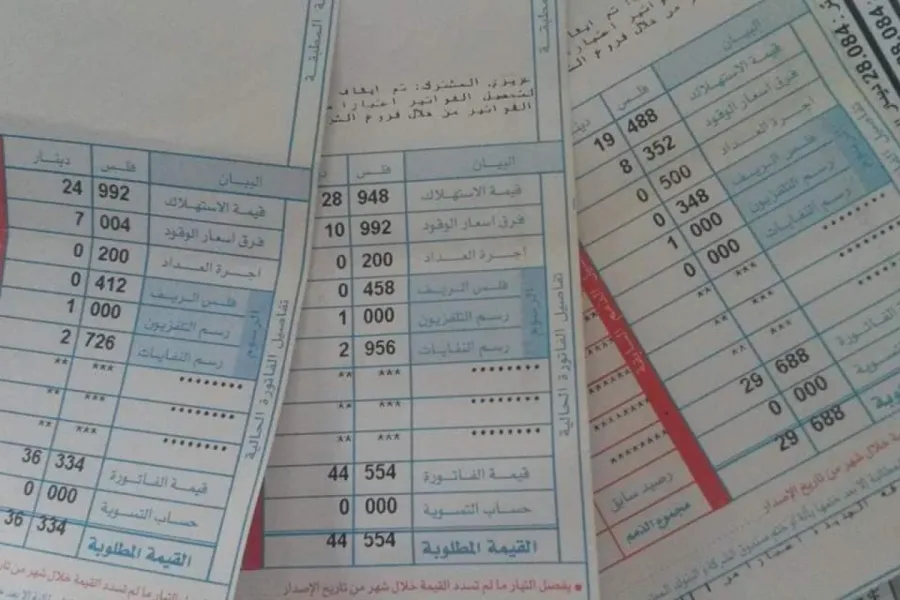 المطبقة
دينار فلس البيان
24 992 قيمة الاستهلاك
7 004 فرق اسعار الوقود
0 200 اجرة العداد
0 412 فلس الريف
1 000 رسم التلفزيون
2 726 رسم النفايات
الرسوم
** *** ••••••••
** *** ••••••••
** *** ••••••••
36 334 قيمة الفاتورة
0 000 حساب التسوية
36 334 القيمة المطلوبة
تفاصيل الفاتورة الحالية
يفصل التيار ما لم تسدد القيمة خلال شهر من تا
عزيزي المشترك: تم ايقاف
لتحصيل الفواتير اعتبارا
الفواتير من خلال فروع
فلس البيان
28 948 قيمة الاستهلاك
10 992 فرق اسعار الوقود
0 200 اجرة العداد
0 458 فلس الريف
1 000 رسم التلفزيون
2 956 رسم النفايات
الرسوم
** *** ••••••••
** *** ••••••••
** *** ••••••••
44 554 قيمة الفاتورة
0 000 حساب التسوية
44 554 القيمة المطلوبة
تفاصيل الفاتورة الحالية
• يفصل التيار ما لم تسدد القيمة خلال شهر من تاريخ الإصدار
28.084
فلس البيان
19 488 قيمة الاستهلاك
8 352 فرق اسعار الوقود
0 500 اجرة العداد
0 348 فلس الريف
1 000 رسم التلفزيون
0 000 رسم النفايات
** *** ••••••••
** ***
** ***
29 688 الفاتورة
0 000
29 688
رصيد سابق
مجموع الذمم
خلال شهر من تاريخ الإصدار